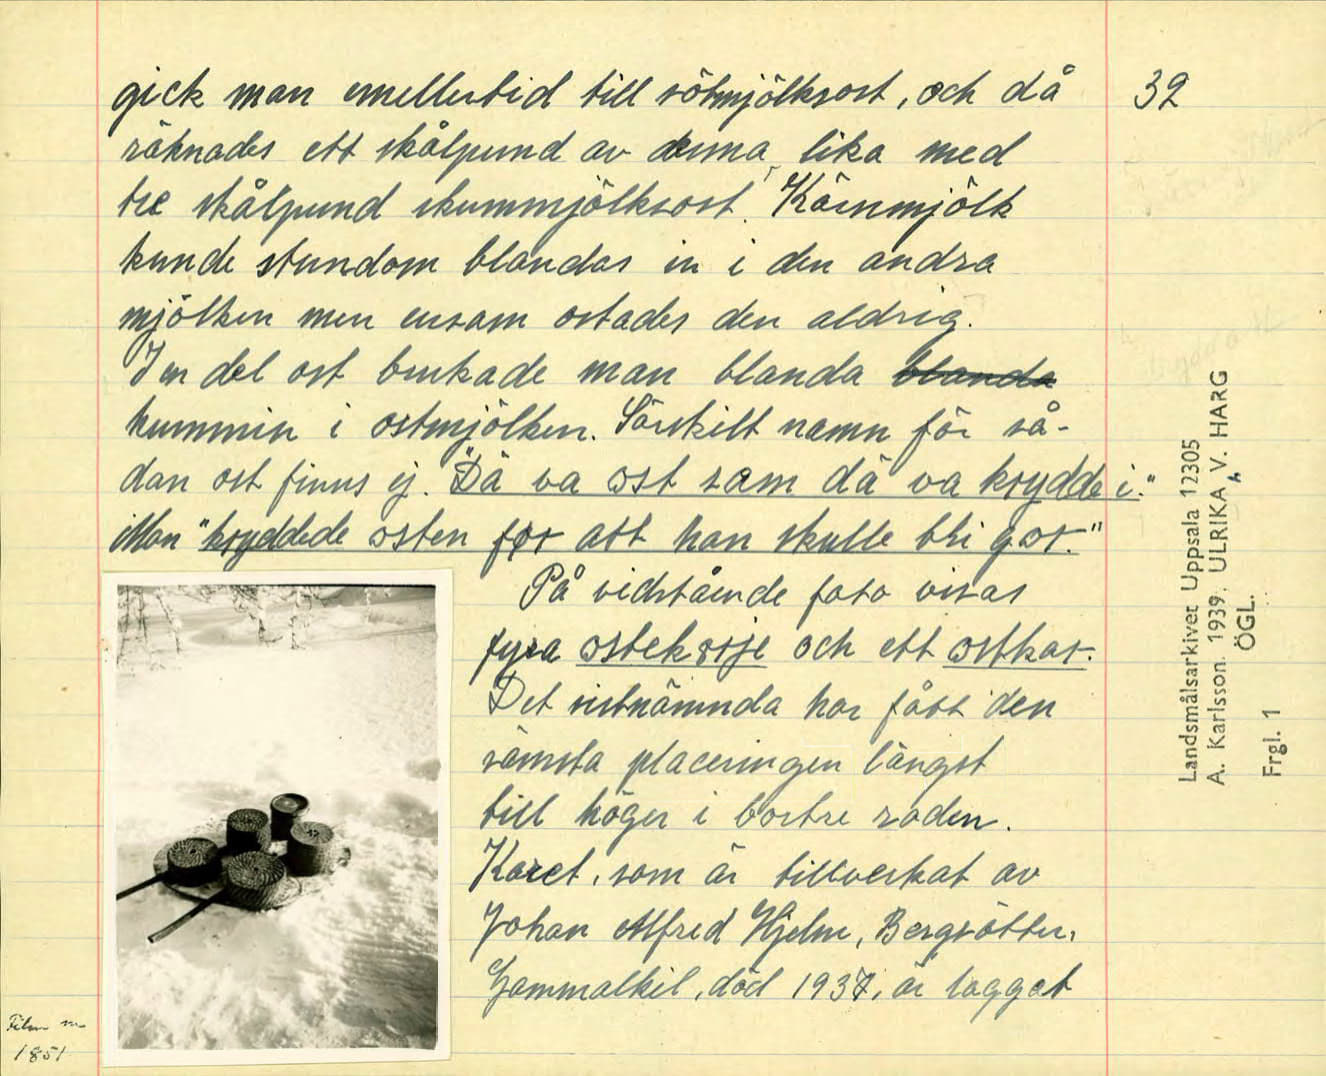 gick man emellertid till sötmjölksost, och då
räknades ett skålpund av denna, lika med
tre skålpund skummjölksost. Kärnmjölk
kunde stundom blandas in i den andra
mjölken men ensam ostades den aldrig.
I en del ost brukade man blanda blanda
kummin i ostmjölken. Särskilt namn för så-
dan ost finns ej. "Dä va ost sam dä va krydde i."
Man "kryddede osten før att han skulle bli gor."
På vidstående foto visas
fyra ostekorje och ett ostkar.
Det sistnämnda har fått den
sämsta placeringen längst
till höger i bortre raden.
Karet, som är tillverkat av
Johan Alfred Hjelm, Bergsätter,
Gammalkil, död 1937, är laggat
32
Landsmålsarkivet Uppsala 12305
A. Karlsson. 1939. ULRIKA, V. HARG
ÖGL.
Frgl. 1
Film nr
1851